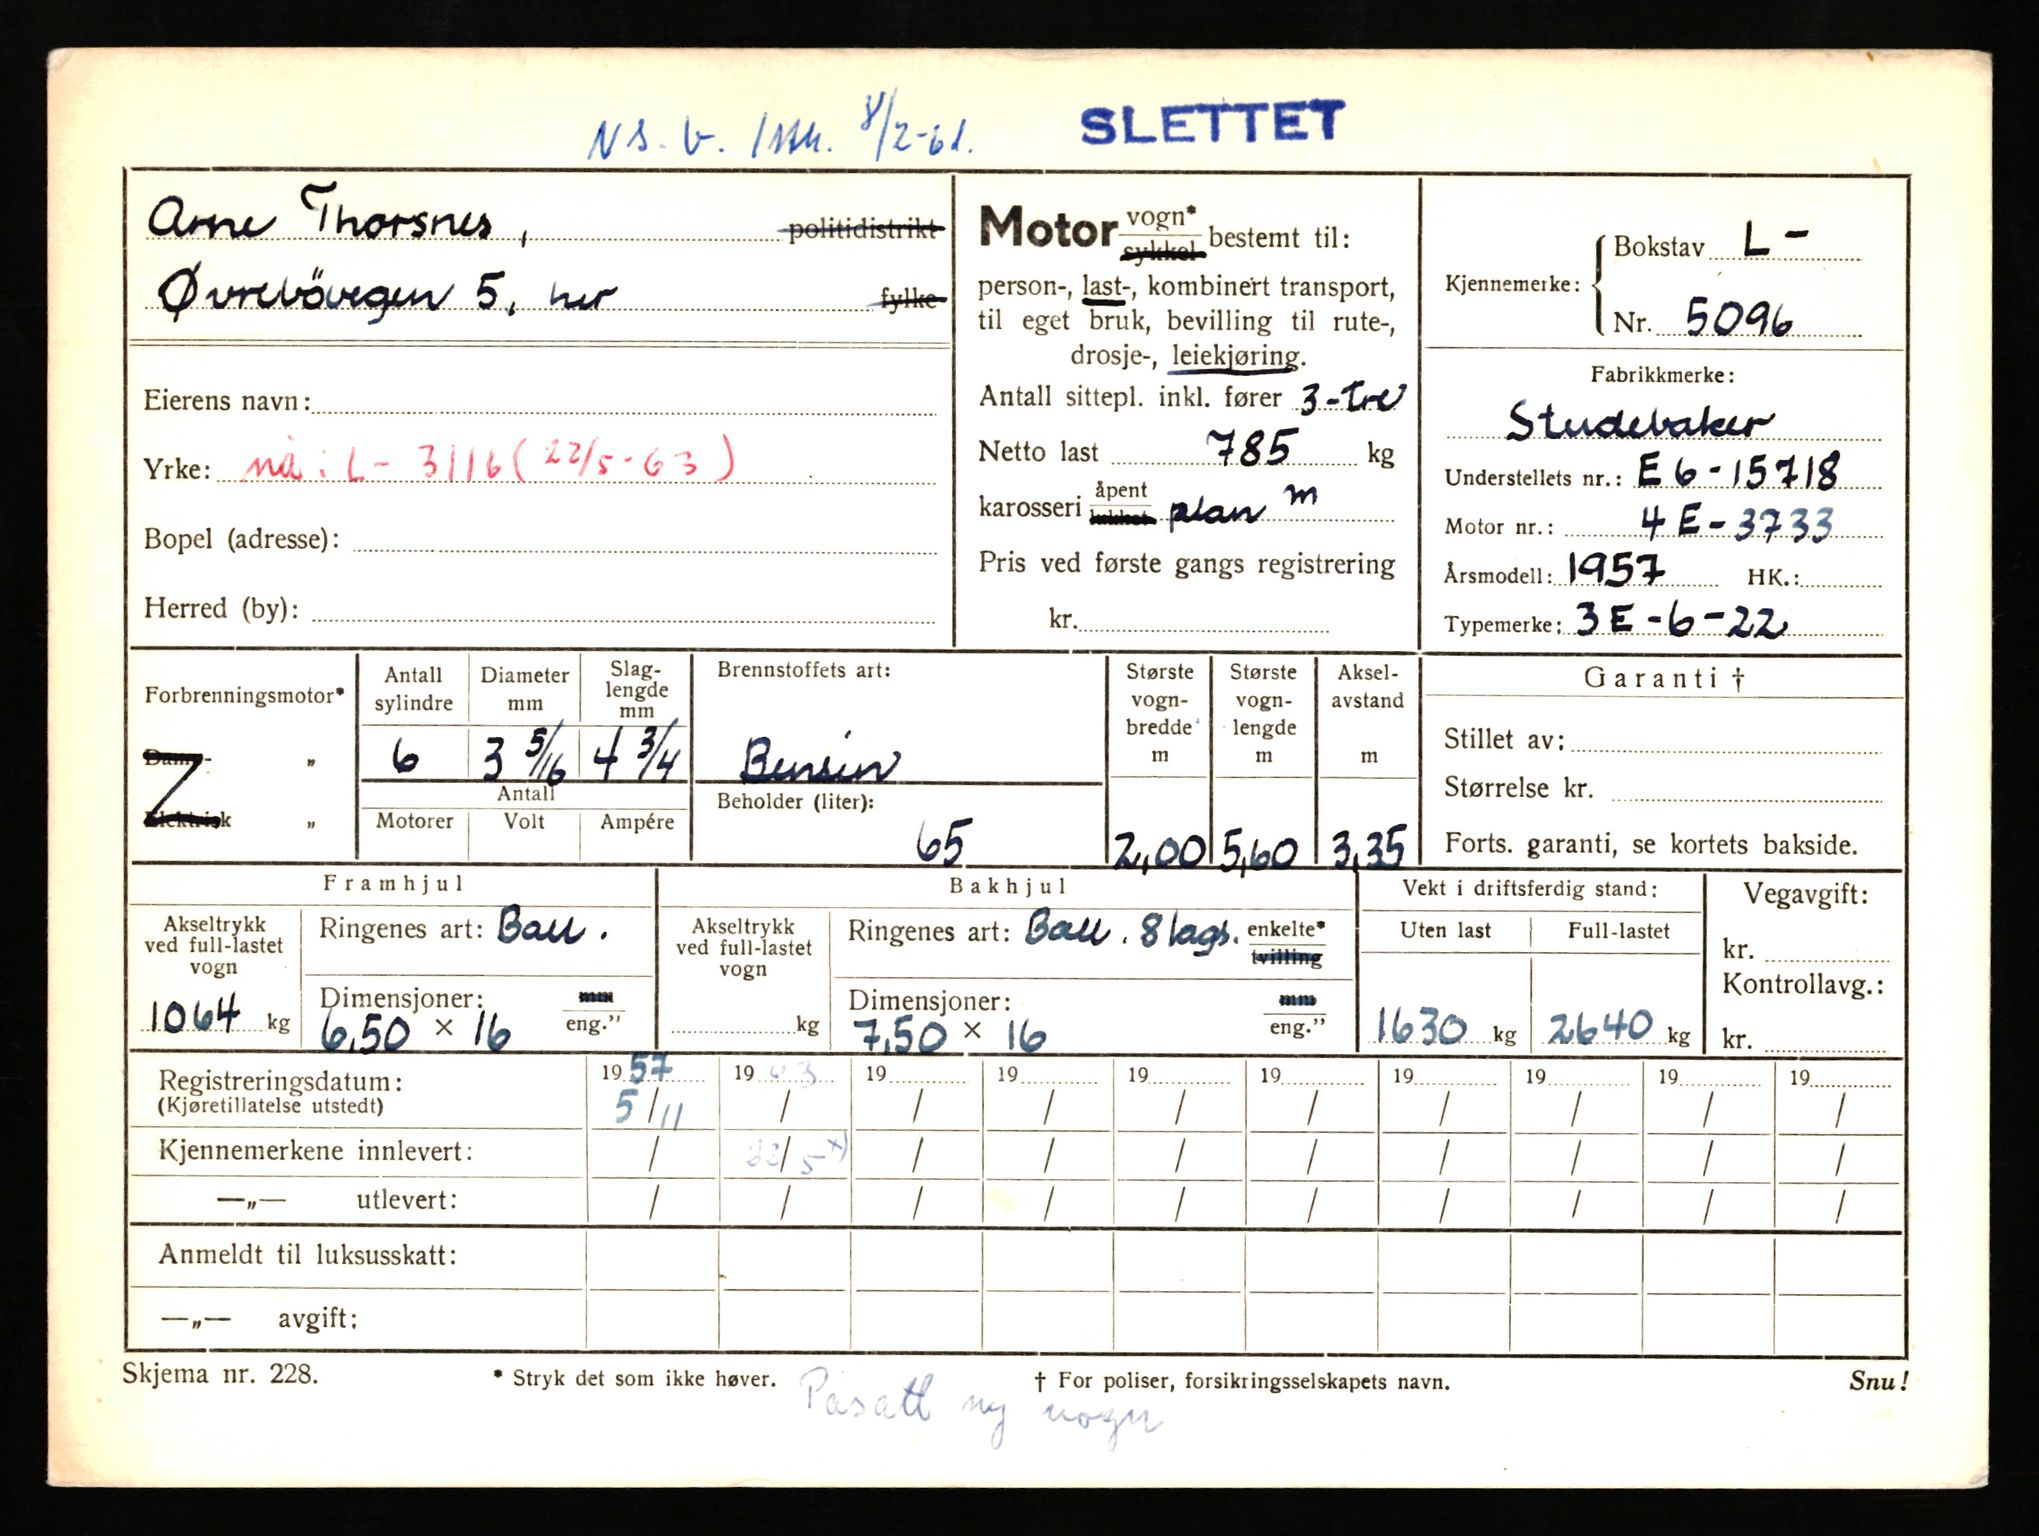 8/2-61.
SLETTET
Arne Thorsnes, politidistrikt
Øvrebövegen 5, her fylke
Eierens navn:
Yrke: nå: L- 3116 (22/5-63)
Bopel (adresse):
Herred (by):
Motor vogn* sykkel bestemt til:
person-, last-, kombinert transport,
til eget bruk, bevilling til rute-,
drosje-, leiekjøring.
Antall sittepl. inkl. fører 3-tre
Netto last 785 kg
karosseri åpent lukket plan m
Pris ved første gangs registrering
kr.
Kjennemerke: Bokstav L-
Nr. 5096
Fabrikkmerke:
Studebaker
Understellets nr.: E6-15718
Motor nr.: 4E-3733
Årsmodell: 1957 HK.:
Typemerke: 3E-6-22
Forbrenningsmotor*
Damp- "
Elektrisk "
Antall sylindre
6
Diameter mm
3 5/16
Slag-
lengde
mm
4 3/4
Antall
Motorer Volt Ampére
Brennstoffets art:
Bensin
Beholder (liter):
65
Største
vogn-
bredde
m
2,00
Største
vogn-
lengde
m
5,60
Aksel-
avstand
m
3,35
Garanti †
Stillet av:
Størrelse kr.
Forts. garanti, se kortets bakside.
Framhjul
Akseltrykk
ved full-lastet
vogn
1064 kg
Ringenes art: Ball.
Dimensjoner: mm
6,50 × 16 eng."
Bakhjul
Akseltrykk
ved full-lastet
vogn
kg
Ringenes art: Ball. 8 lags. enkelte* tvilling
Dimensjoner: mm
7,50 × 16 eng."
Vekt i driftsferdig stand:
Uten last Full-lastet
1630 kg 2640 kg
Vegavgift:
kr.
Kontrollavg.:
kr.
Registreringsdatum: 1957 1963 19 19 19 19 19 19 19 19
(Kjøretillatelse utstedt) 5/11 / / / / / / / / /
Kjennemerkene innlevert: / 22/5 x) / / / / / / / /
—„— utlevert: / / / / / / / / / /
Anmeldt til luksusskatt:
—„— avgift:
Skjema nr. 228. * Stryk det som ikke høver. † For poliser, forsikringsselskapets navn. Snu!
Påsatt ny vogn